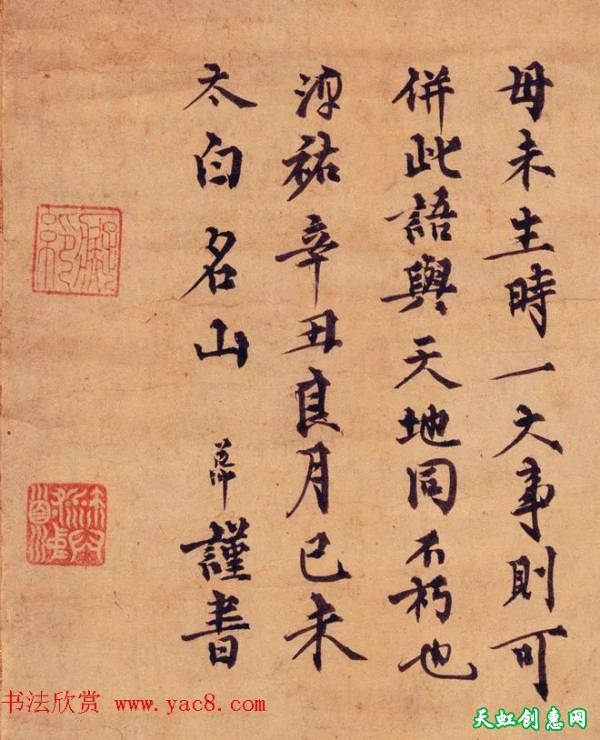 母未生時一大事則可
併此語與天地同不朽也
淳祐辛丑良月己未
太白名山 謹書
书法欣赏 www.yac8.com
天虹创惠网